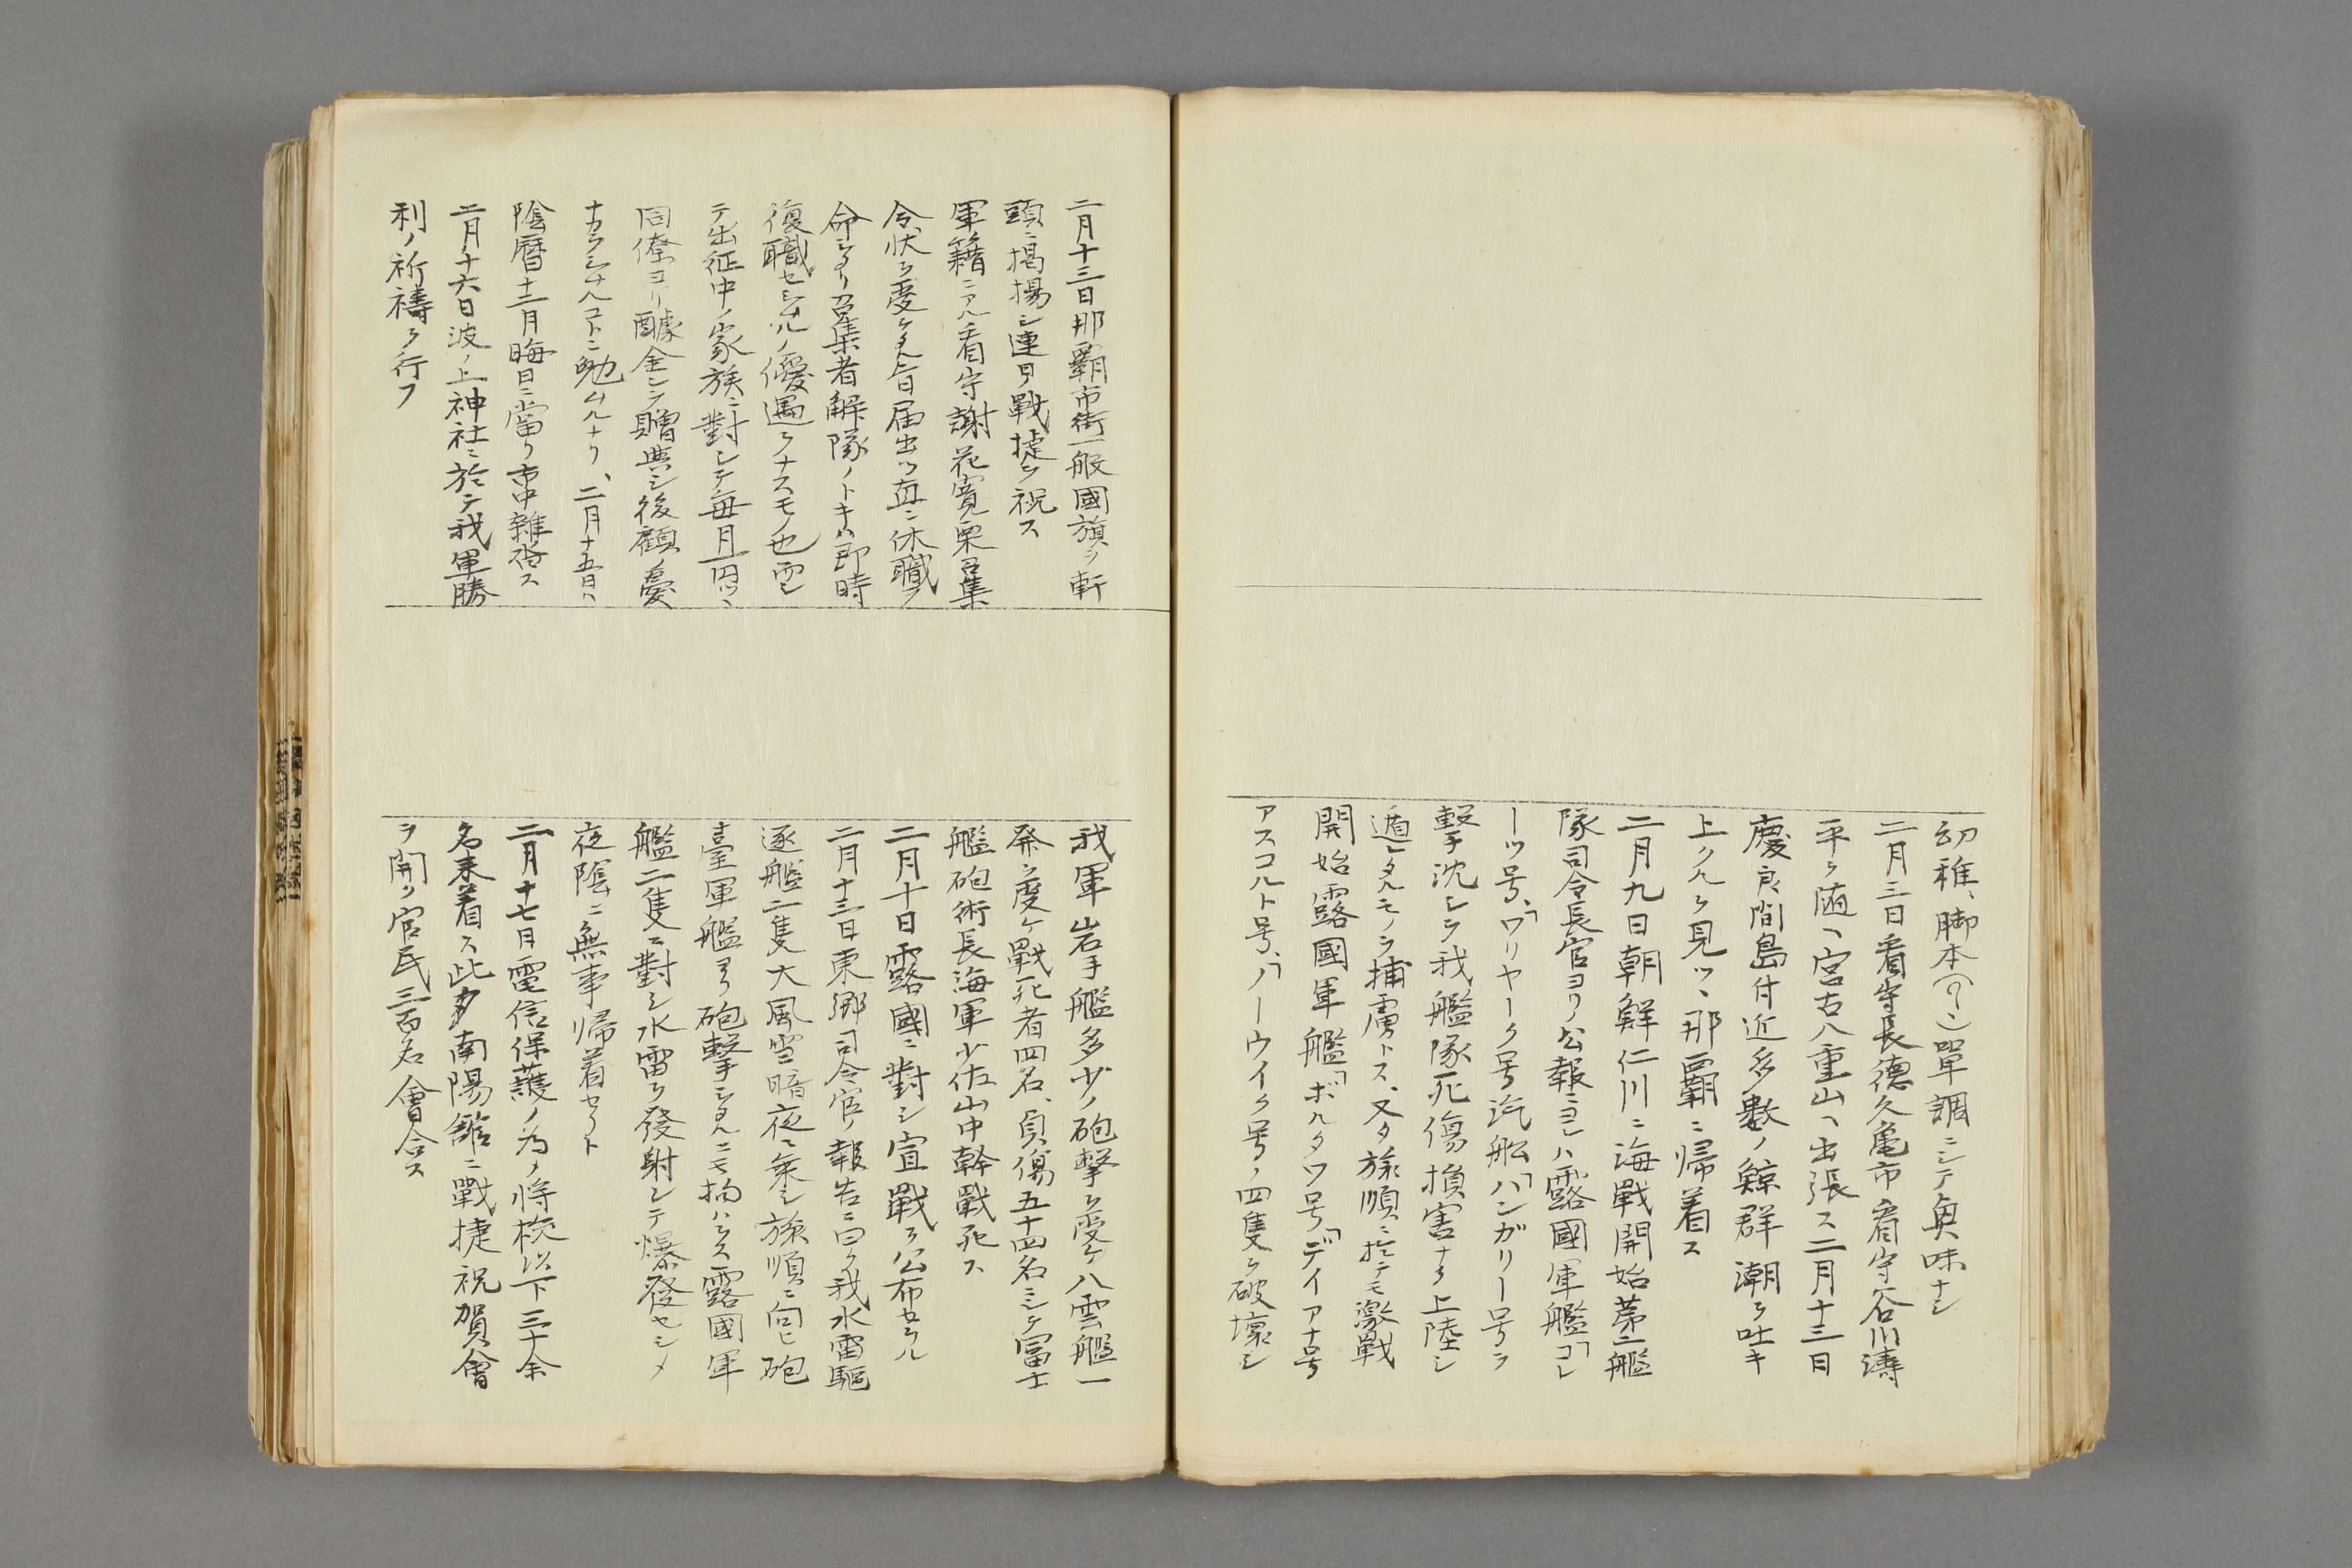 幼稚、脚本(ノー)單調ニシテ興味ナシ
二月三日看守長德久亀市看守谷川濤
平ヲ随ヘ宮古八重山ヘ出張ス二月十三日
慶良間島付近多數ノ鯨群潮ヲ吐キ
上クルヲ見ツヽ那覇ニ帰着ス
二月九日朝鮮仁川ニ海戰開始第二艦
隊司令長官ヨリノ公報ニヨレハ露國軍艦「コレ
ーツ号、「ワリヤーク号汽舩「ハンガリー号ヲ
撃沈シテ我艦隊死傷損害ナク上陸シ
遁レタルモノヲ捕虜トス、又タ旅順ニ於テモ激戰
開始露國軍艦「ボルタワ号「デイアナ号
アスコルト号、「ノーウイク号ノ四隻ヲ破壞シ
二月十三日那覇市街一般國旗ヲ軒
頭ニ掲揚シ連日ノ戰捷ヲ祝ス
軍籍ニアル看守謝花寛栗召集
令状ヲ受ケタル旨届出ツ直ニ休職ヲ
命シタリ召集者解隊ノトキハ即時
復職セシムルノ優遇ヲナスモノ也而シ
テ出征中ノ家族ニ對シテ毎月一円ツヽ
同僚ヨリ醵金シテ贈與シ後顧ノ憂
ナカラシムルコトニ勉ムルナリ、二月十五日ハ
陰暦十二月晦日ニ當リ市中雜沓ス
二月十六日波ノ上神社ニ於テ我軍勝
利ノ祈禱ヲ行フ
我軍岩手艦多少ノ砲撃ヲ受ケ八雲艦一
発ヲ受ケ戰死者四名、負傷五十四名ニシテ冨士
艦砲術長海軍少佐山中幹戰死ス
二月十日露國ニ對シ宣戰ヲ公布セラル
二月十三日東郷司令官ノ報告ニ曰ク我水雷駆
逐艦二隻大風雪暗夜ニ乗シ旅順ニ向ヒ砲
臺軍艦ヨリ砲撃シタルニモ拘ハラス露國軍
艦二隻ニ對シ水雷ヲ發射シテ爆發セシメ
夜陰ニ無事帰着セリト
二月十七日電信保護ノ為ノ將校以下三十余
名来着ス此夕南陽舘ニ戰捷祝賀會
ヲ開ク官民三百名會合ス